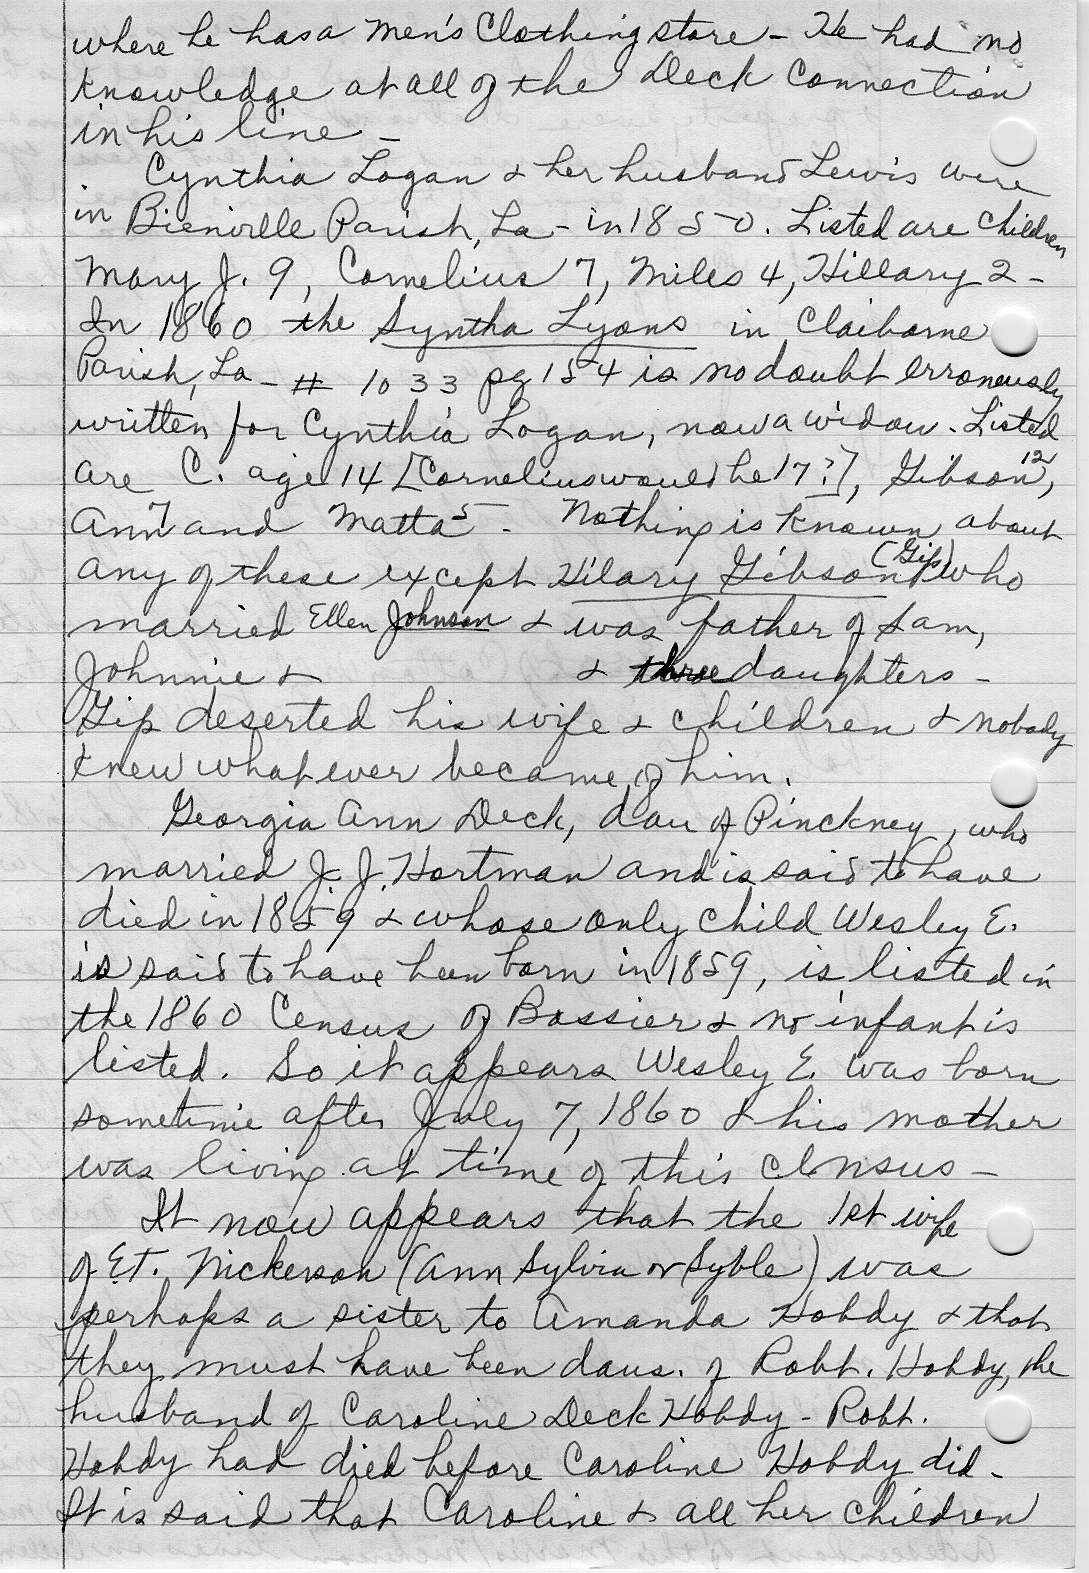 where he has a men's Clothing store - He had no
knowledge at all of the Deck Connection
in his line -
Cynthia Logan & her husband Lewis were
in Bienville Parish, La - in 1850. Listed are children
Mary J. 9, Cornelius 7, Miles 4, Hillary 2 -
In 1860 the Syntha Lyons in Claiborne
Parish, La - # 1033 pg 154 is no doubt erroneously
written for Cynthia Logan, now a widow. Listed
are C. age 14 [Cornelius would be 17?], Gibson 12,
Ann 7 and Matta 5 - Nothing is known about
any of these except Hilary Gibson (Gip) who
married Ellen Johnson & was father of Sam,
Johnnie & & three daughters -
Gip deserted his wife & children & nobody
knew what ever became of him.
Georgia Ann Deck, dau of Pinckney, who
married J. J. Hortman and is said to have
died in 1859 & whose only child Wesley E.
is said to have been born in 1859, is listed in
the 1860 Census of Bossier & no infant is
listed. So it appears Wesley E. was born
sometime after July 7, 1860 & his mother
was living at time of this census -
It now appears that the 1st wife
of E.T. Nickerson (Ann Sylvia or Syble) was
perhaps a sister to Amanda Hobdy & that
they must have been daus. of Robt. Hobdy, the
husband of Caroline Deck Hobdy - Robt.
Hobdy had died before Caroline Hobdy did -
It is said that Caroline & all her children